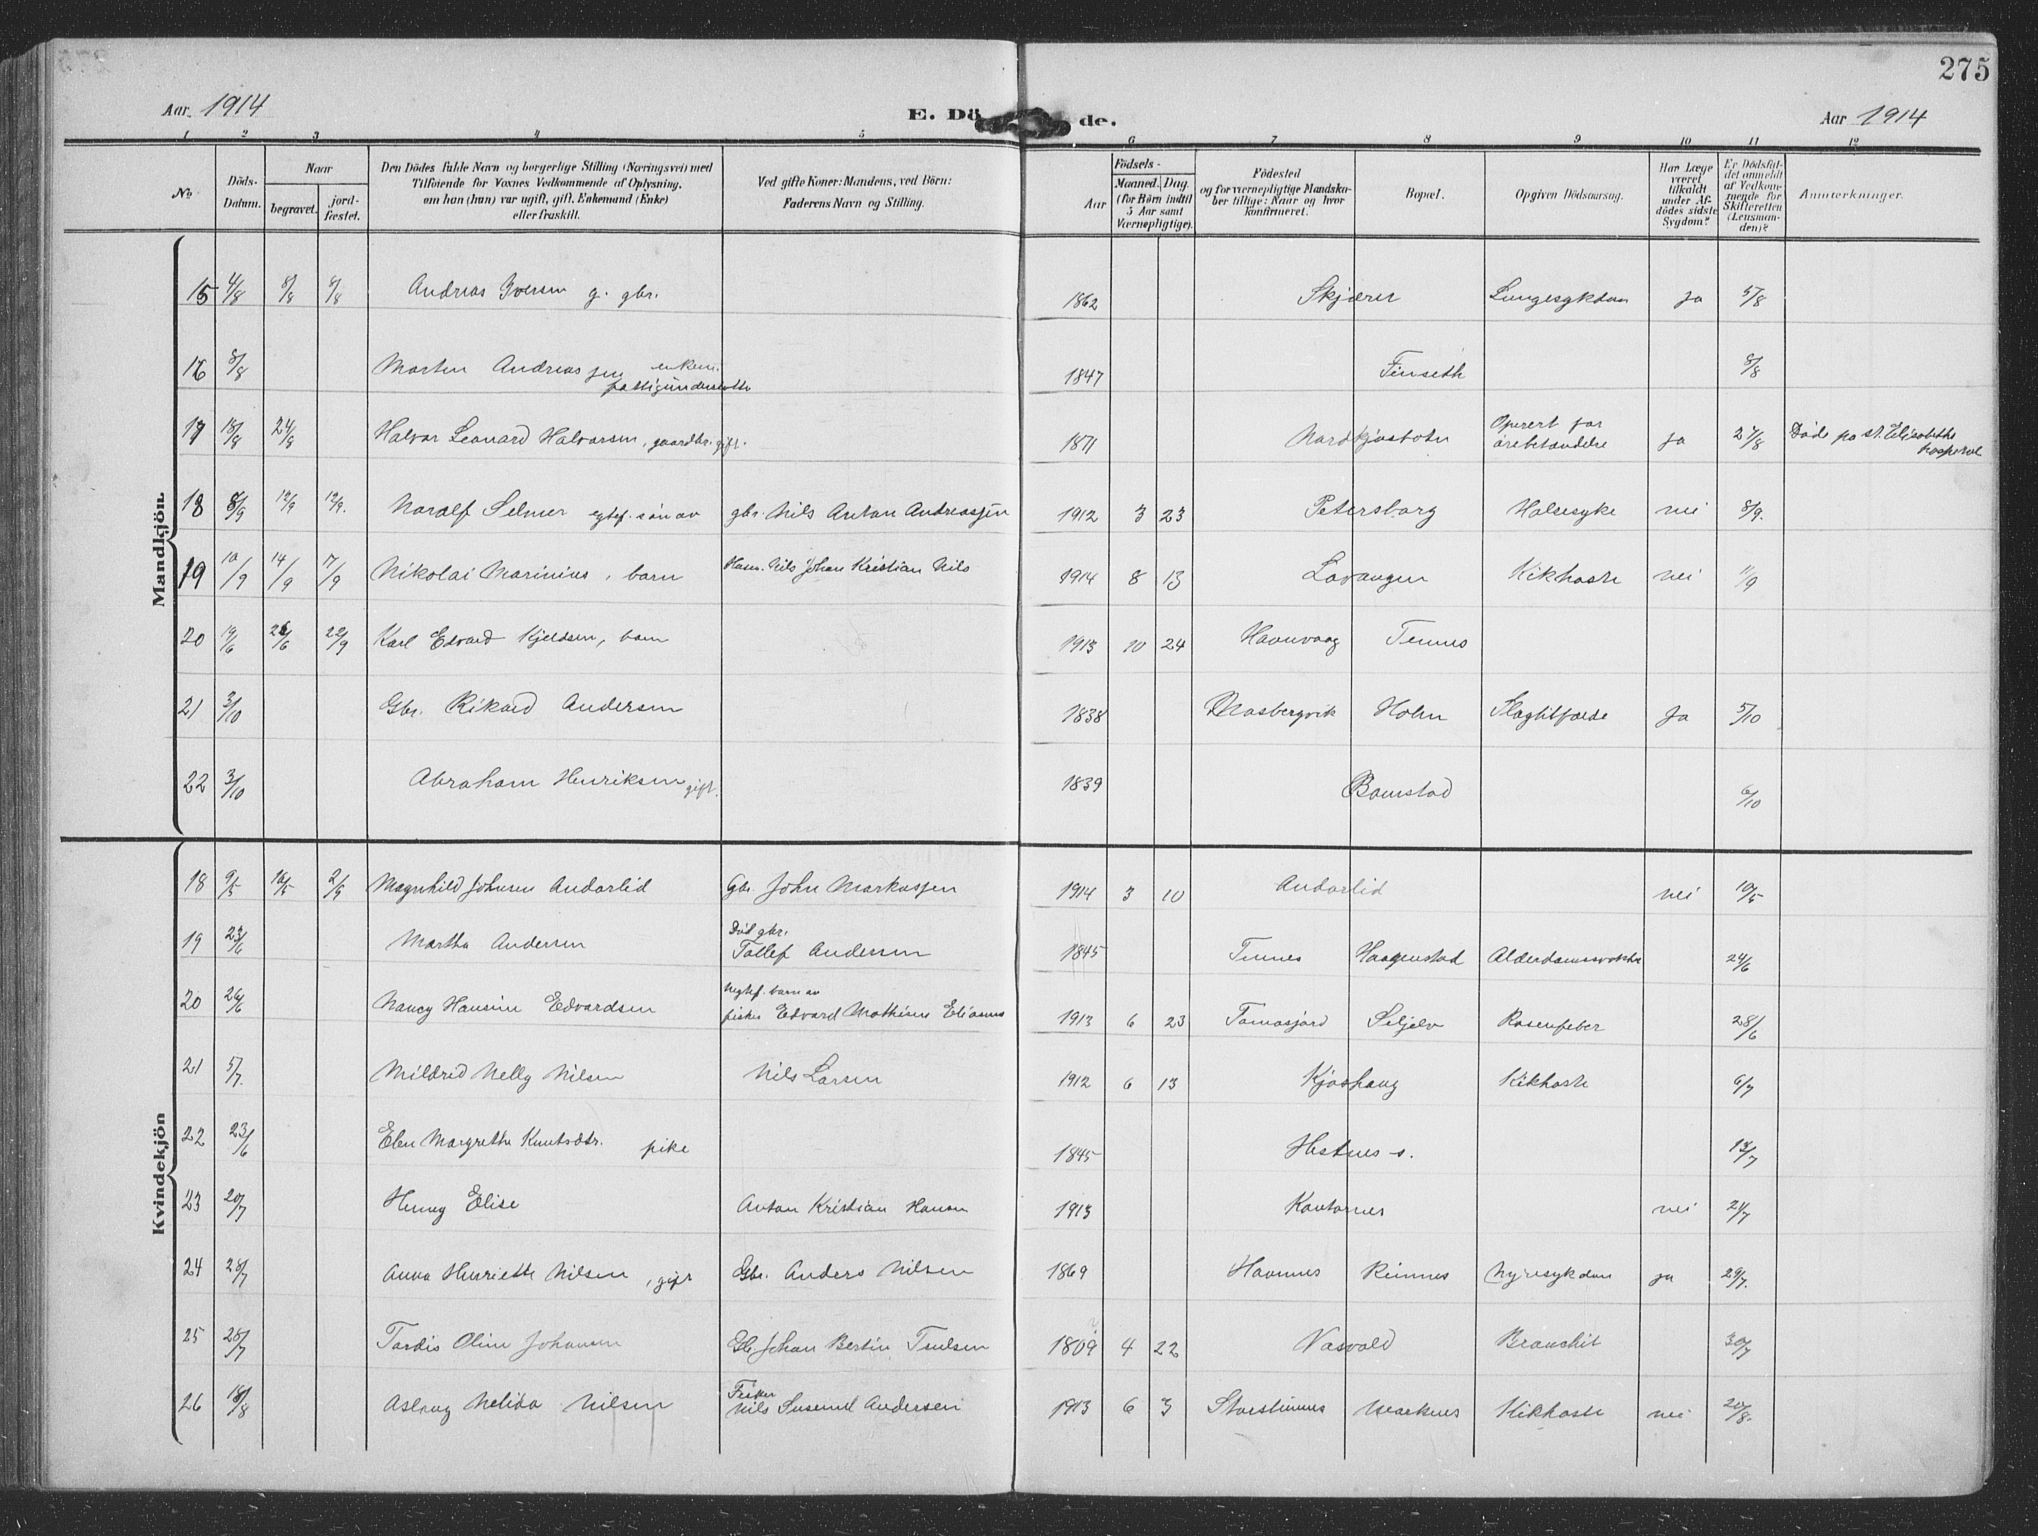 275
Aar 1914
E. Dö de.
Aar 1914
1 2 3 4 5 6 7 8 9 10 11 12
No.
Döds-Datum.
Naar
begravet.
jord-fæstet.
Den Dödes fulde Navn og borgerlige Stilling (Næringsvei) med
Tilföiende for Voxnes Vedkommende af Oplysning,
om han (hun) var ugift, gift, Enkemand (Enke)
eller fraskilt.
Ved gifte Koner: Mandens, ved Börn:
Faderens Navn og Stilling.
Födsels-
Aar
Maaned. Dag.
(for Börn indtil
5 Aar samt
Værnepligtige).
Födested
og for værnepligtige Mandska-
ber tillige: Naar og hvor
konfirmeret.
Bopæl.
Opgiven Dödsaarsag.
Har Læge
været
tilkaldt
under Af-
dödes sidste
Sygdom?
Er Dödsfal-
det anmeldt
af Vedkom-
mende for
Skifteretten
(Lensman-
den)?
Anmærkninger.
Mandkjön.
15 4/8 8/8 8/8 Andreas Iversen g. gbr. 1862 Skjæret Lungesykdom ja 5/8
16 8/8 Martin Andreassen enkem. 1847 Finseth 8/8
17 18/8 24/8 Halvar Leonard Halvorsen, gaardbr. gift. 1871 Operert for ja 27/8 Döde pa st. Elisabeths
hospital
18 8/9 12/9 12/9. Noralf Selmer egtef. sön av gbr. Nils Anton Andreassen 1912 3 23 Petersborg Halsesyke nei 8/9.
19 10/9 14/9 17/9 Nikolai Marinius, barn Nils Johan Kristian Nils 1914 8 13 Lavangen Kikhoste nei 11/9
20 19/6 26/6 22/9 Karl Edvard Kjeldsen, barn 1913 10 24 Havnvaag Tennes
21 3/10 Gbr. Rikard Andersen 1838 Masbergvik Holm Slagtilfælde Ja 5/10
22 3/10 Abraham Henriksen gift. 1839 Bomstad 6/10
Kvindekjön
18 9/5 16/5 2/9 Magnhild Johnsen Andorlid Gbr. John Markussen 1914 3 10 Andorlid nei 10/5
19 23/6 Martha Andersen Död gbr.
Tollef Andersen 1845 Tennes Haagenstad 24/6
20 26/6 Nancy Hansine Edvardsen uegtef. barn av
fisker Edvard Mathisen Eliasens 1913 6 23 Tomasjord Seljelv Rosenfeber 28/6
21 5/7. Mildred Nelly Nilsen Nils Larsen 1912 6 13 Kjoshaug Kikhoste 6/7
22 23/6 Elen Margrethe Knutsdtr. pike 1845 Hestnes s. 13/7
23 20/7 Henny Elise Anton Kristian Hansen 1913 Kantornes nei 24/7
24 28/7 Anna Henriette Nilsen, gift Gbr. Anders Nilsen 1869 Havnnes Reinnes Nyresykdom ja 29/7.
25 28/7 Tordis Oline Johansen Johan Bertin 1809 4 22 Vasvold Bronchit 30/7
26 18/8 Aslaug Melida Nilsen Fisker
Nils Andersen 1913 6 3 Storstinnes Marknes Kikhoste nei 20/8.